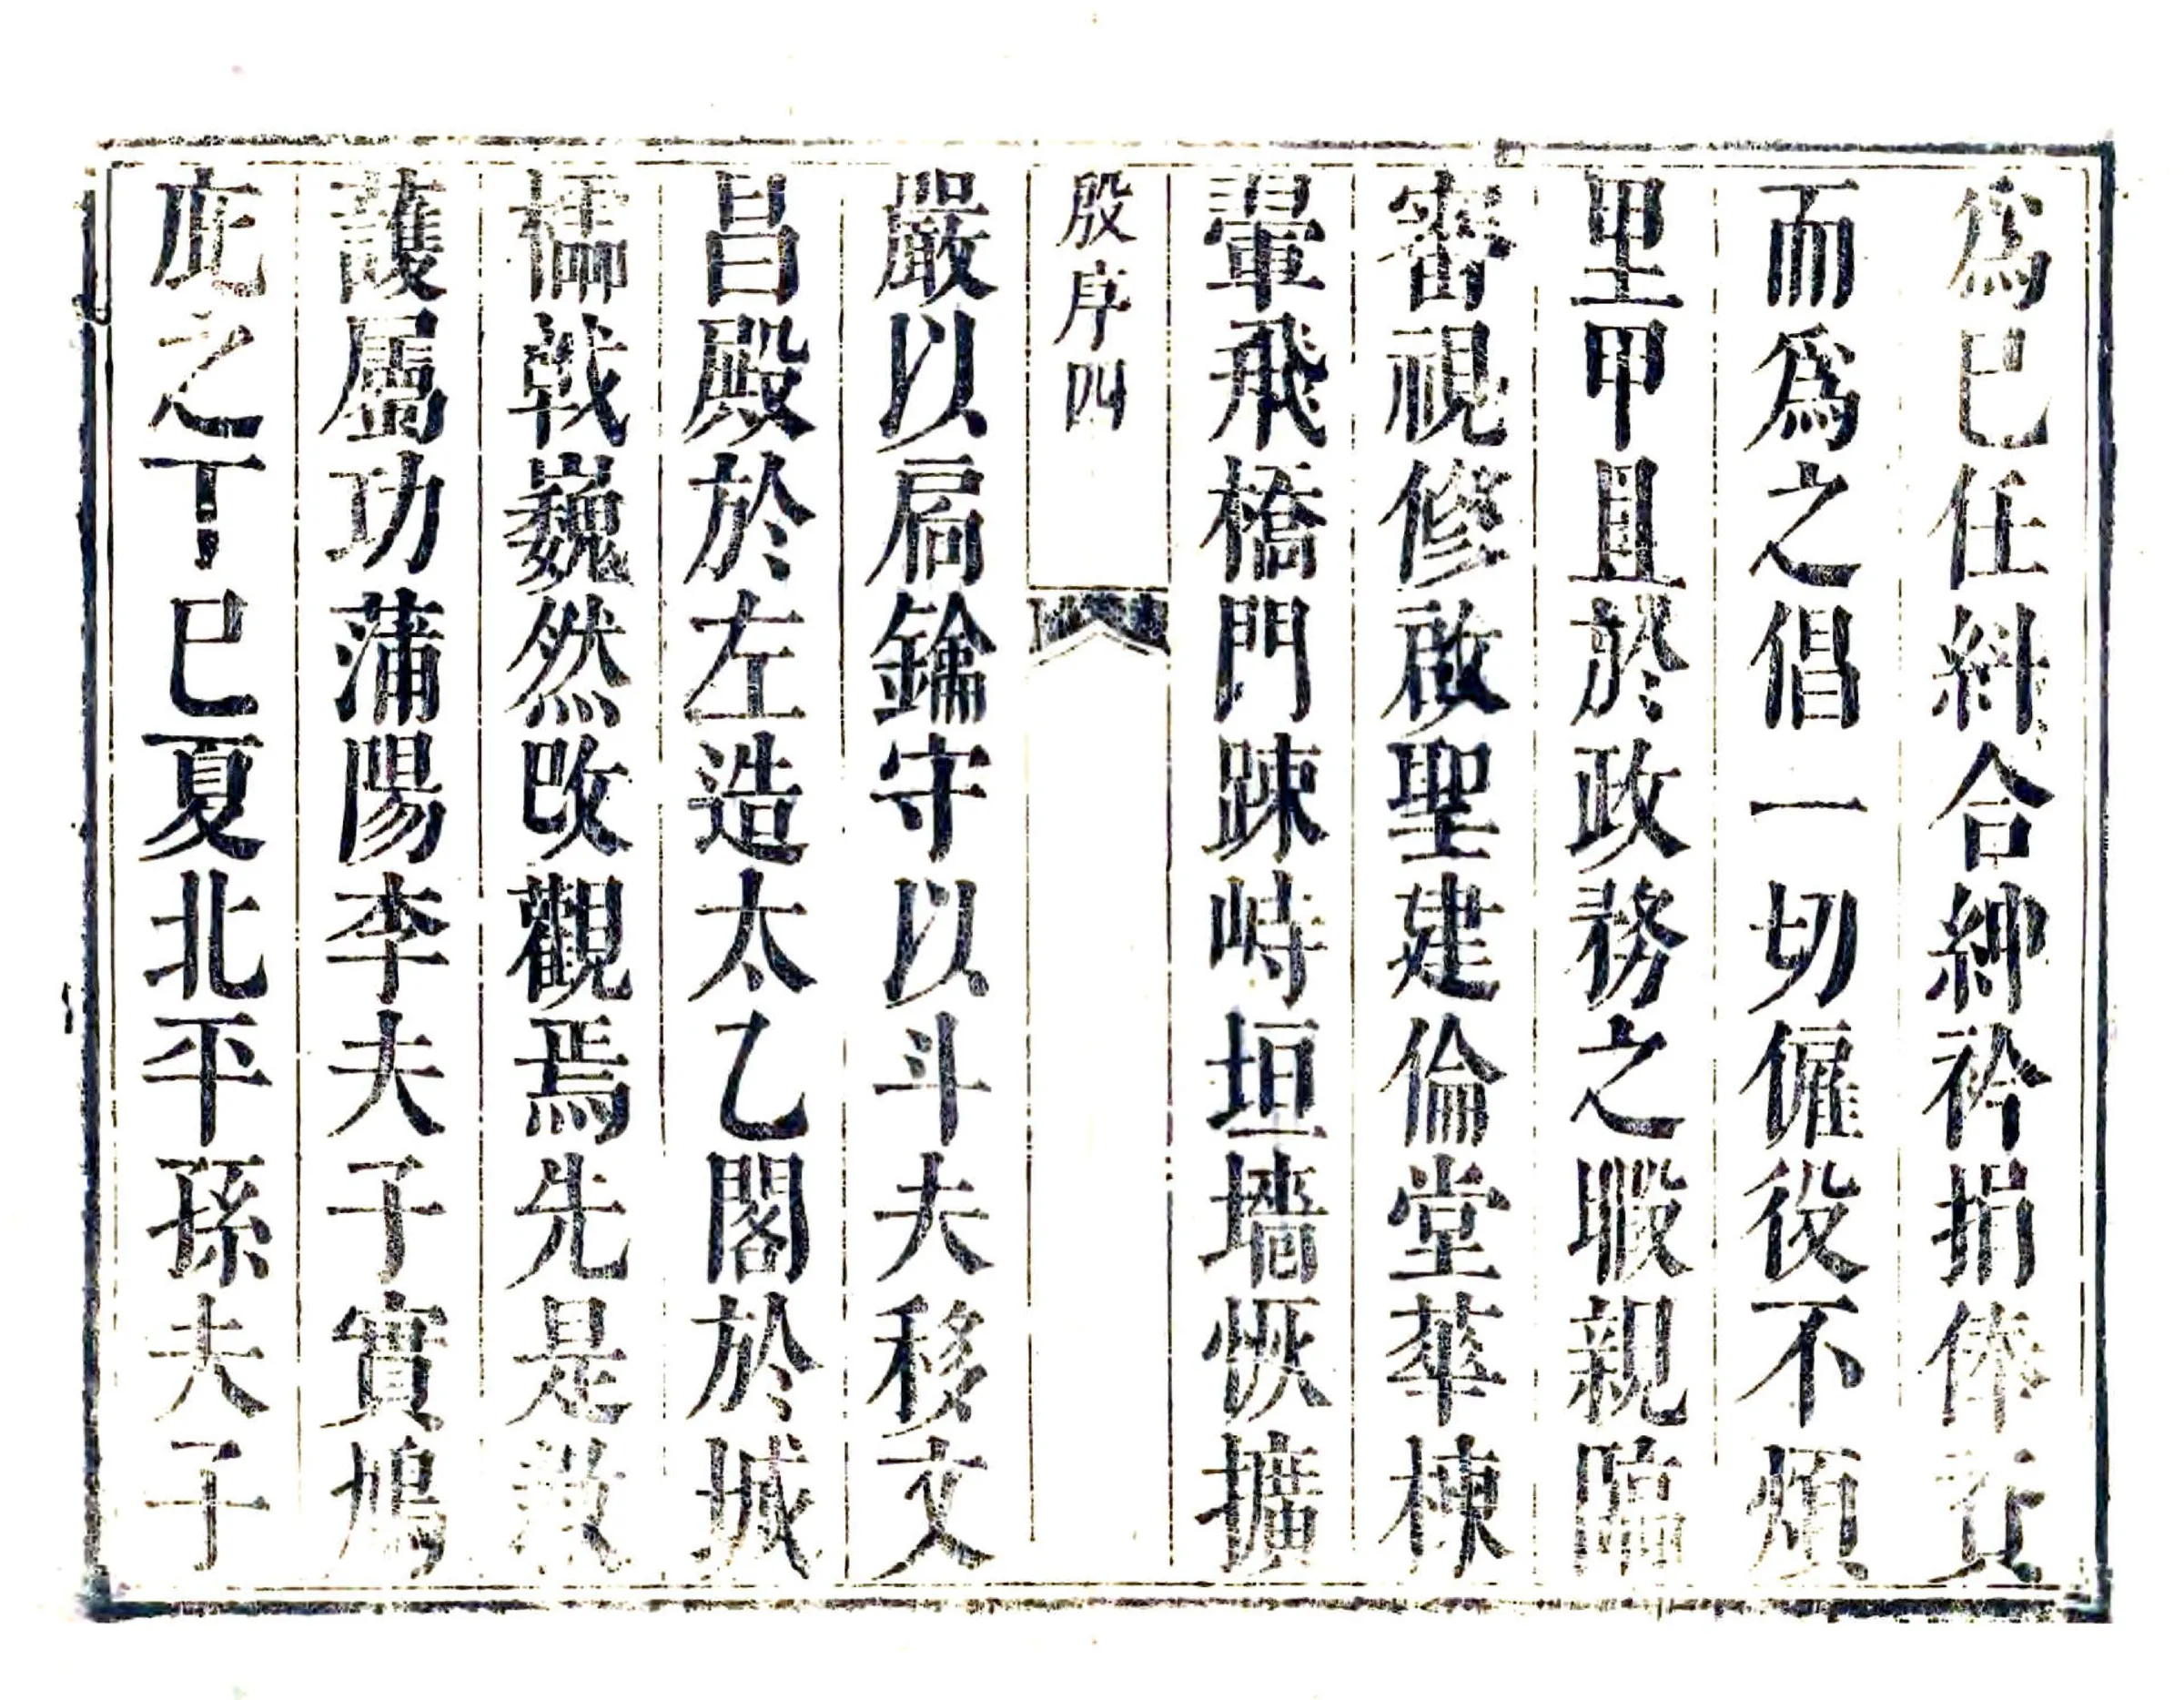 爲已任糾合紳衿捐俸
而爲之倡一切僱役不煩
里甲且於政務之暇親臨
審視修啟聖建倫堂華棟
翬飛橋門踈峙垣墻恢擴
殷序四
嚴以扃鑰守以斗夫移文
昌殿於左造太乙閣於城
櫺戟巍然改觀焉先是
護屬功蒲陽李夫子實鳩
庇之丁巳夏北平孫夫子